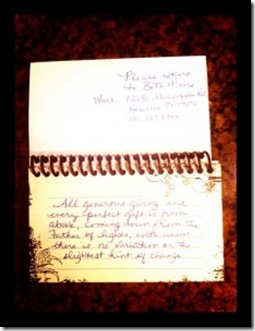 Please return
to Beth Moore
Work:
Houston, TX
All generous giving and
every perfect gift is from
above, coming down from the
Father of lights, with whom
there is no variation or the
slightest hint of change